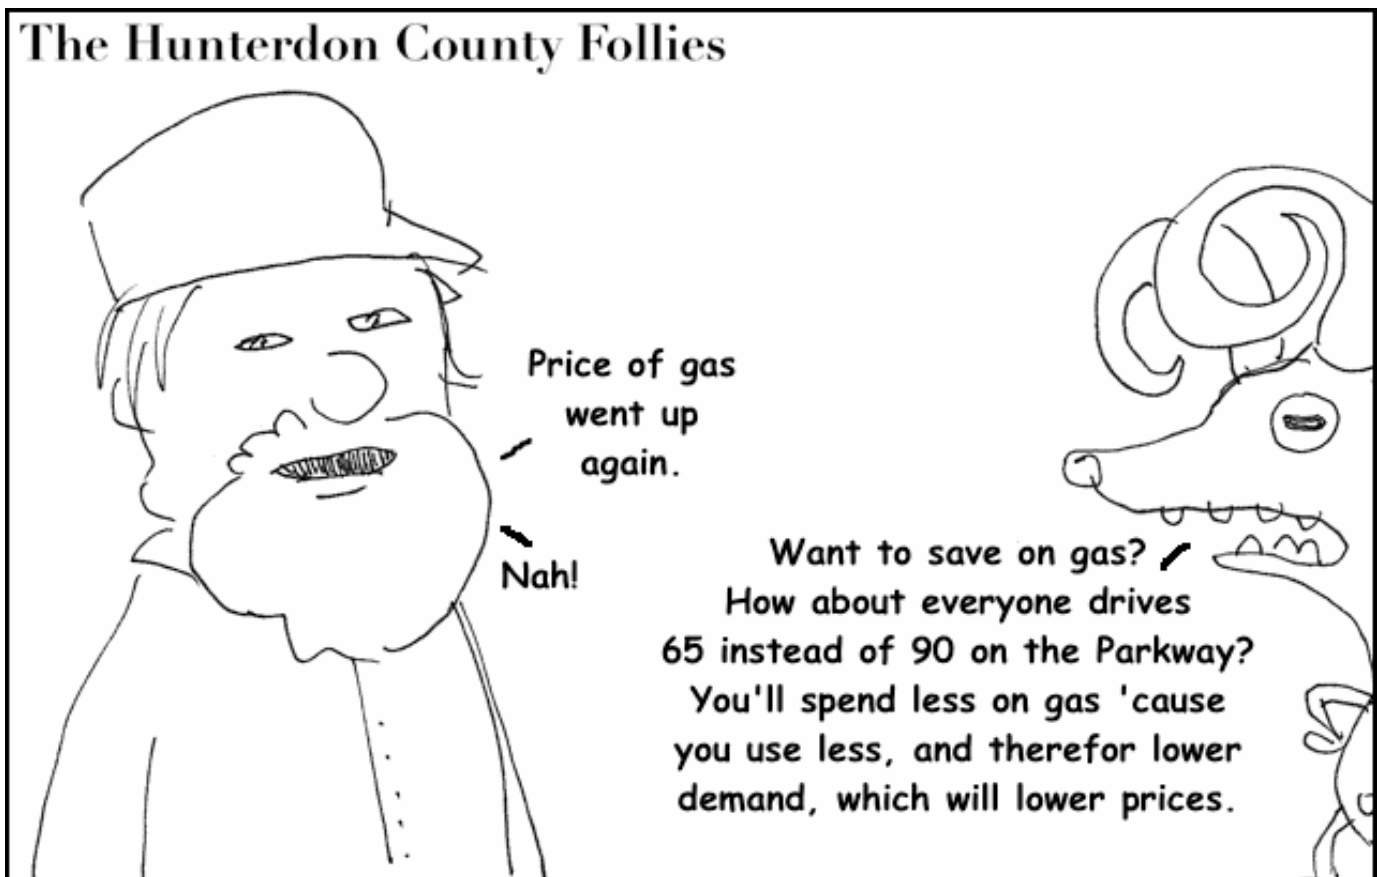 The Hunterdon County Follies
Price of gas
went up
again.
Want to save on gas?
How about everyone drives
65 instead of 90 on the Parkway?
You'll spend less on gas 'cause
you use less, and therefor lower
demand, which will lower prices.
Nah!